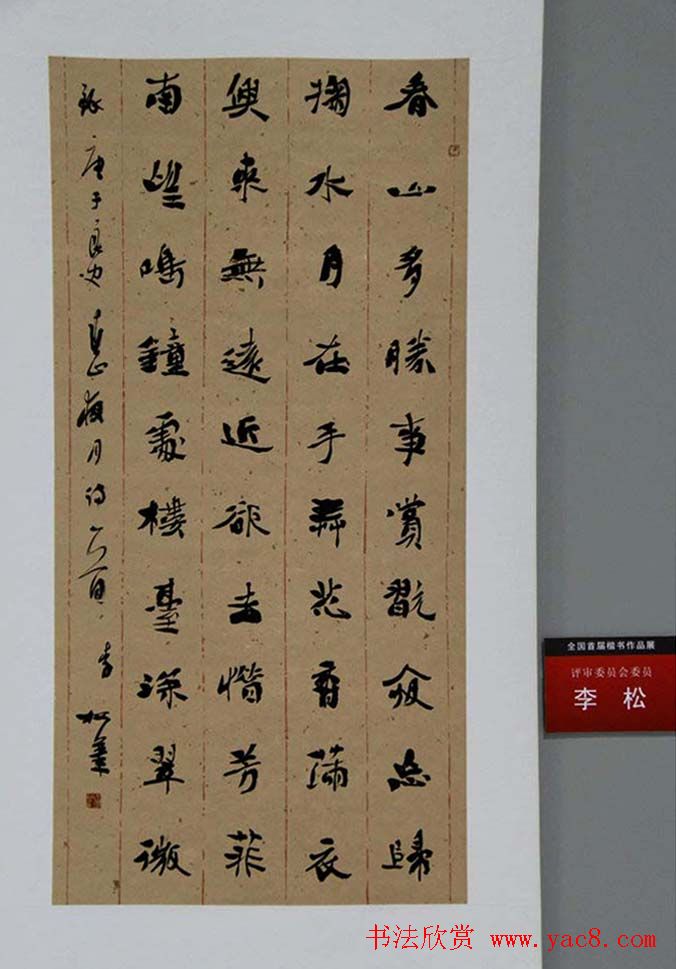 春山多勝事賞翫夜忘歸
掬水月在手弄花香滿衣
興來無遠近欲去惜芳菲
南望鳴鐘處樓臺深翠微
錄唐于良史春山夜月詩一首 李松
全国首届楷书作品展
评审委员会委员
李 松
书法欣赏 www.yac8.com